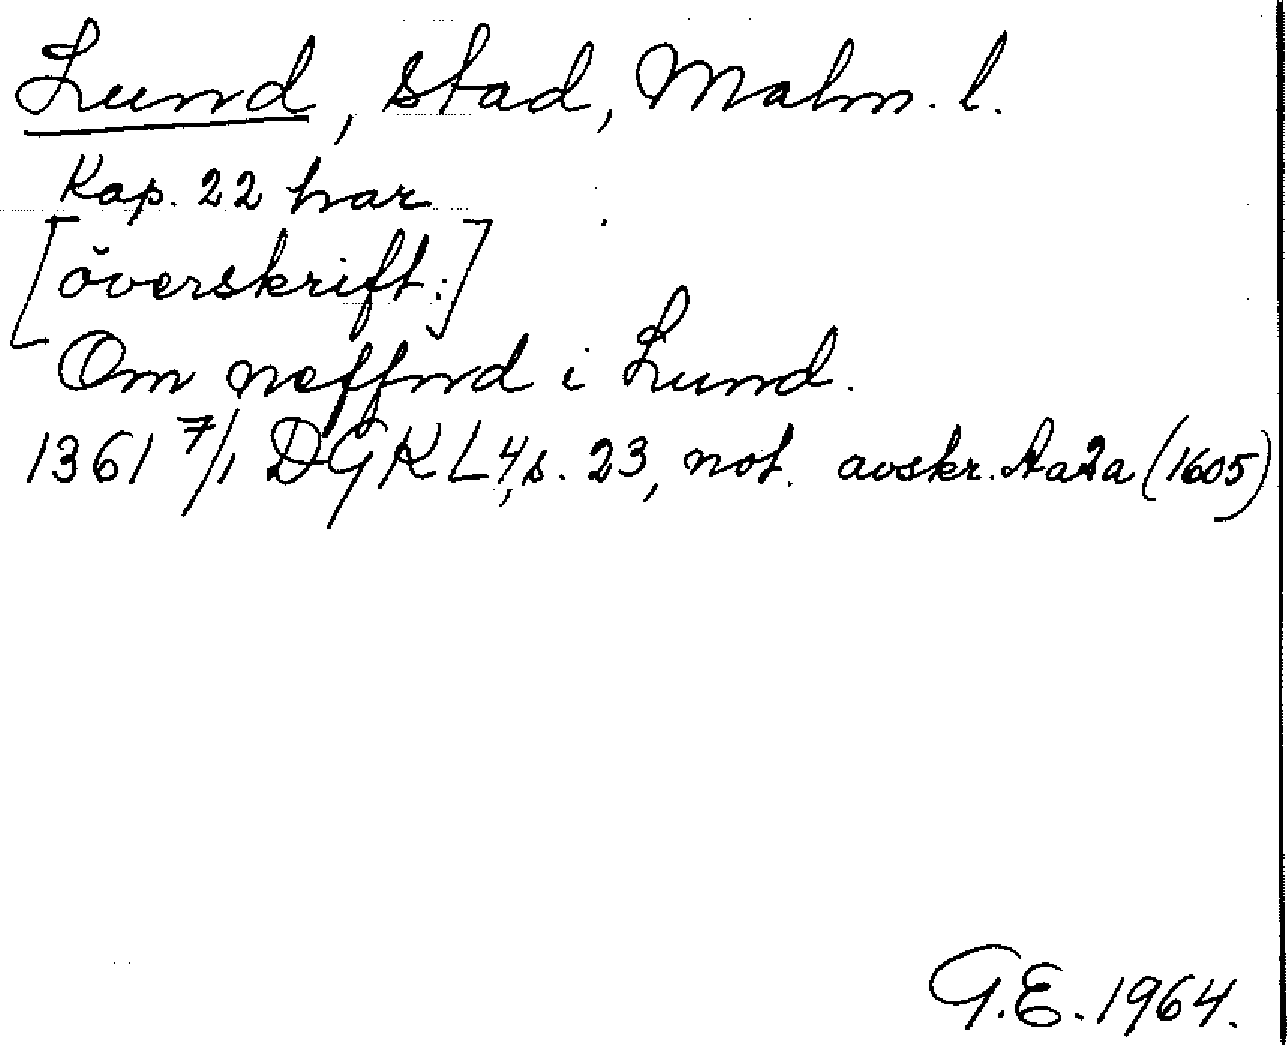 Lund, stad, Malm. l.
Kap. 22 har
[överskrift:]
Om neffnd i Lund.
1361 7/1 DGKL4, s. 23, not. avskr. Aa2a (1605)
G.E. 1964.